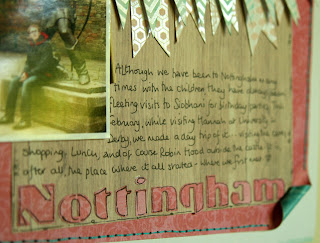 Although we have been to Nottingham many
times with the children they have always been
fleeting visits to Siobhans for birthday parties. This
February, while visiting Hannah at University in
Derby, we made a day trip of it - visiting the castle,
shopping, Lunch, and of course Robin Hood outside the castle. It is
after all, the place where it all started - where we first met
Nottingham